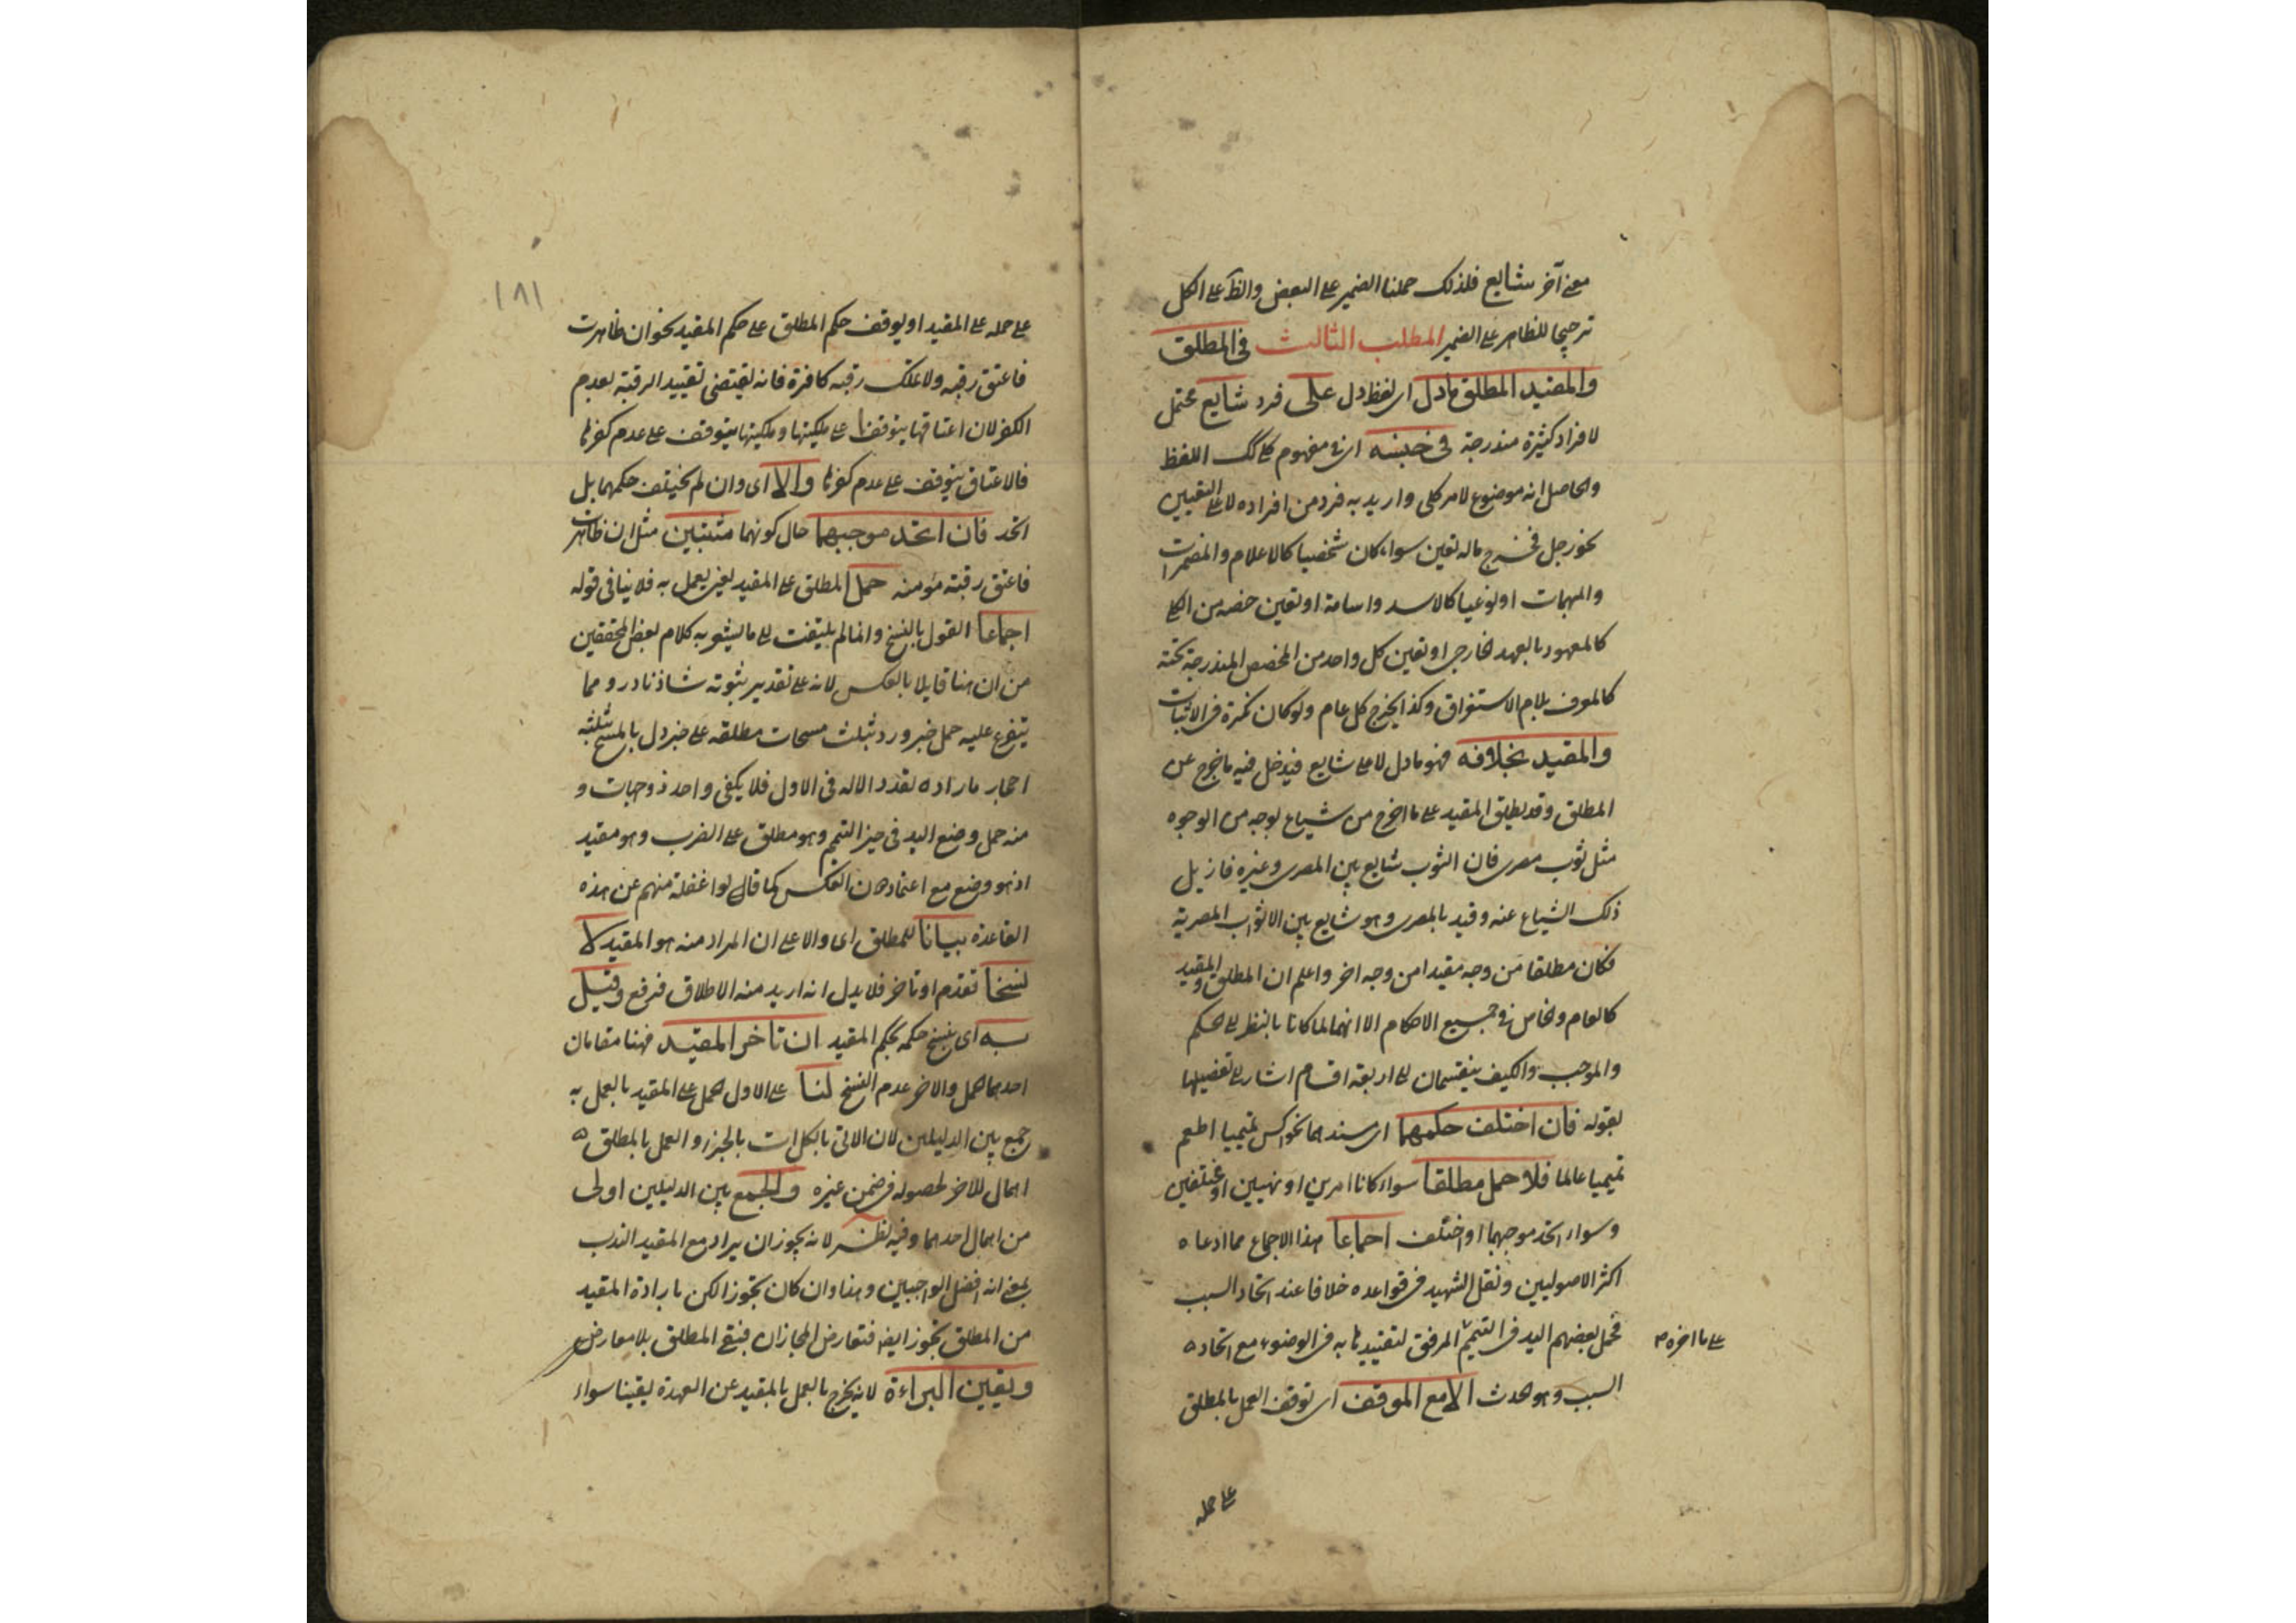 معنى آخر شايع فلذلك حملنا الضمير على البعض والظ على الكل
ترجيحا للظاهر على الضمير المطلب الثالث في المطلق
والمقيد المطلق ما دل اى لفظ دل على فرد شايع محتمل
لافراد كثيرة مندرجة في جنسه اى في مفهوم كلى لك اللفظ
والحاصل انه موضوع لامر كلى واريد به فرد من افراده لا على التعيين
نحو رجل فخرج ما له تعين سواء كان شخصيا كالاعلام والمضمرات
والمبهمات او نوعيا كالاسد واسامة او تعين حصه من الكلى
كالمعهود بالعهد الخارجى او تعين كل واحد من الحصص المندرجة تحته
كالمعرف بلام الاستغراق وكذا يخرج كل عام ولو كان نكرة في الاثبات
والمقيد بخلافه فهو ما دل لا على شايع فيدخل فيه ما خرج عن
المطلق وقد يطلق المقيد على ما اخرج من شياع بوجه من الوجوه
مثل ثوب مصرى فان الثوب شايع بين المصرى وغيره فازيل
ذلك الشياع عنه وقيد بالمصرى وهو شايع بين الاثواب المصرية
فكان مطلقا من وجه مقيدا من وجه اخر واعلم ان المطلق والمقيد
كالعام والخاص في جميع الاحكام الا انهما لما كانا بالنظر الى الحكم
والموجب والكيف ينقسمان الى اربعة اقسام اشار الى تفصيلها
بقوله فان اختلف حكمهما اى مسندهما نحو اكس تميميا اطعم
تميميا عالما فلا حمل مطلقا سواء كانا امرين او نهيين او مختلفين
وسواء اتحد موجبهما او اختلف اجماعا هذا الاجماع مما ادعاه
اكثر الاصوليين ونقل الشهيد في قواعده خلافا عند اتحاد السبب
فحمل بعضهم اليد في التيمم المرفق لتقييدها به في الوضوء مع اتحاده
على ما اخره
السبب وهو الحدث الا مع الموقف اى توقف العمل بالمطلق
على حمله
١٨١
على حمله على المقيد او يوقف حكم المطلق على حكم المقيد نحو ان ظاهرت
فاعتق رقبه ولا تملك رقبه كافرة فانه يقتضى تقييد الرقبة بعدم
الكفر لان اعتاقها يتوقف على ملكيتها وملكيتها يتوقف على عدم كفرها
فالاعتاق يتوقف على عدم كفرها والا اى وان لم يختلف حكمهما بل
اتحد فان اتحد موجبهما حال كونهما مثبتين مثل ان ظاهرت
فاعتق رقبته مؤمنه حمل المطلق على المقيد يعنى يعمل به فلا ينافى قوله
اجماعا القول بالنسخ وانما لم يلتفت الى ما يشعر به كلام بعض المحققين
من ان هنا قايلا بالعكس لانه على تقدير ثبوته شاذ نادر ومما
يتفرع عليه حمل خبر ورد بثلث مسحات مطلقه على خبر دل بالمسح بثلثة
احجار باراده تعدد الاله في الاول فلا يكفى واحد ذو جهات و
منه حمل وضع اليد في حيز التيمم وهو مطلق على الضرب وهو مقيد
اذ هو وضع مع اعتماد العكس كما قالوا غفلة منهم عن هذه
القاعدة بيانا للمطلق اى دالا على ان المراد منه هو المقيد لا
نسخا تقدم او تاخر فلا يدل انه اريد منه الاطلاق فرفع وقيل
به اى بنسخ حكمه بحكم المقيد ان تاخر المقيد فهنا مقامان
احدهما الحمل والاخر عدم النسخ لنا على الاول الحمل على المقيد بالعمل به
جمع بين الدليلين لان الاتى بالكل ات بالجزء والعمل بالمطلق
اهمال للاخر لحصوله في ضمن غيره والجمع بين الدليلين اولى
من اهمال احدهما وفيه نظر لانه يجوز ان يراد مع المقيد الندب
بمعنى انه افضل الواجبين وهذا وان كان تجوزا لكن ارادة المقيد
من المطلق تجوز ايضا فتعارض المجازان فبقى المطلق بلا معارض
ويقين البراءة لانه يخرج بالعمل بالمقيد عن العهدة يقينا سواء